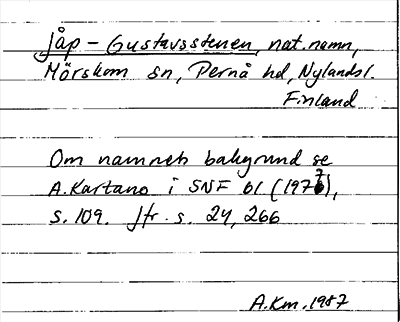 Jåp-Gustavsstenen, nat.namn,
Mörskom sn, Pernå hd, Nylands l.
Finland
Om namnets bakgrund se
A. Kartano i SNF 61 (1977),
s. 109. Jfr s. 24, 266
A.Km. 1987